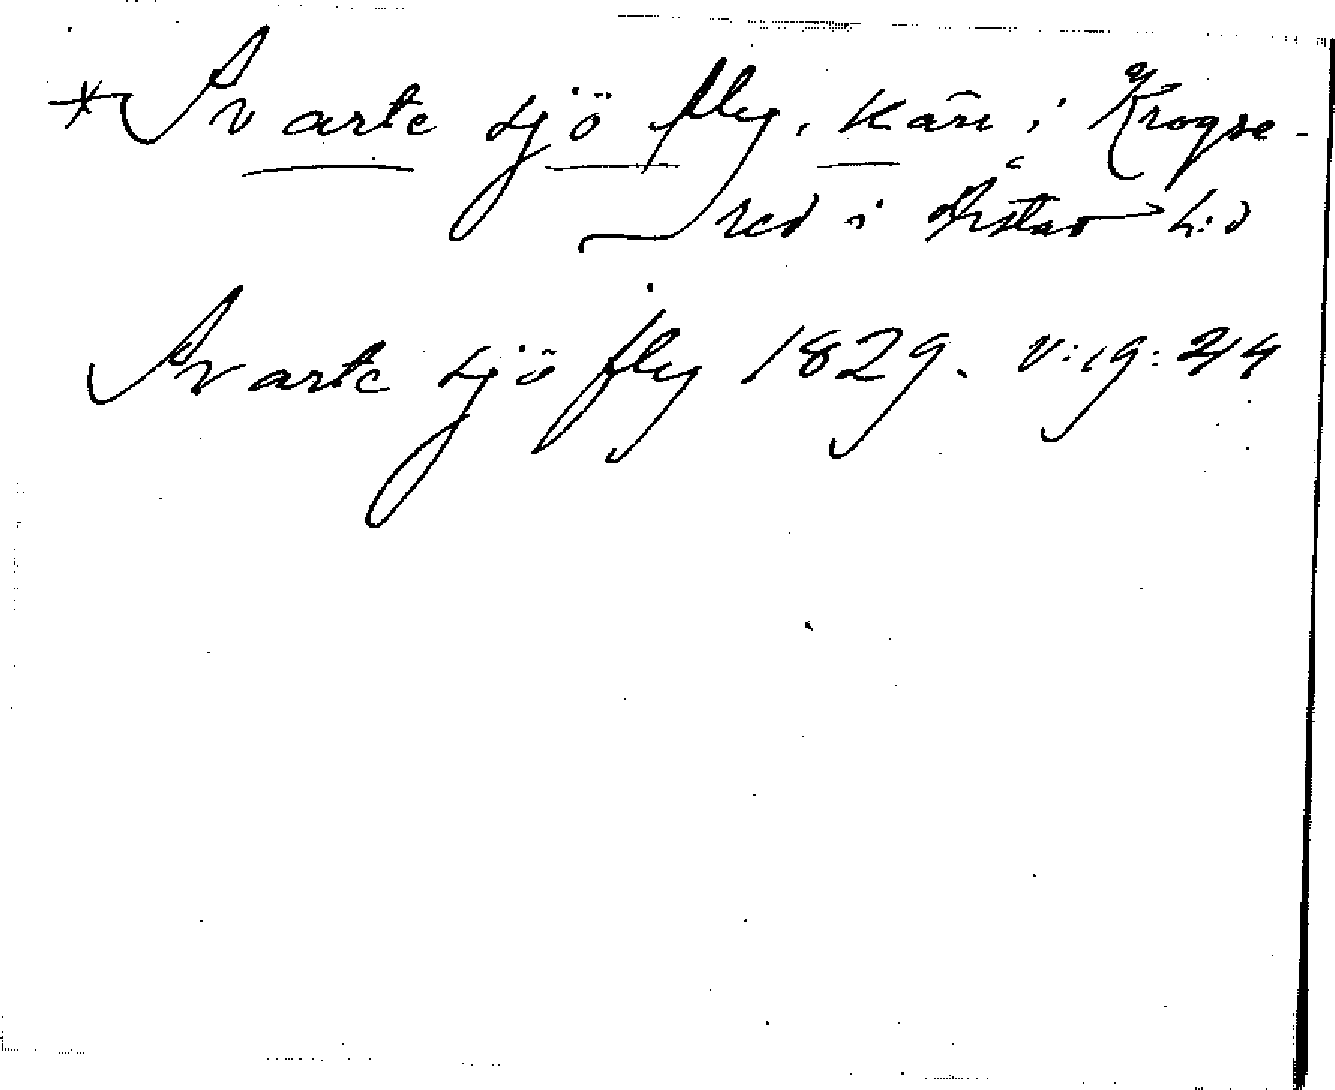 *Svarte sjö fly, kärr i Krogse-
red i Årstad h:d
Svarte sjö fly 1829. V:19:244